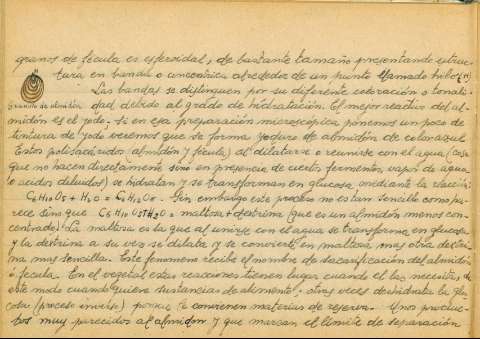 granos de fécula es esferoidal, de bastante tamaño presentando estruc-
tura en bandas o concéntrica alrededor de un punto llamado hilo (n)
Las bandas se distinguen por su diferente coloración o tonali-
Granulo de almidón
dad debido al grado de hidratación. El mejor reactivo del al-
midón es el yodo. Si en esa preparación microscópica ponemos un poco de
tintura de Yodo veremos que se forma yoduro de almidón de color azul
Estos polisacáridos (almidón y fécula) al dilatarse o reunirse con el agua (cosa
que no hacen directamente sino en presencia de ciertos fermentos, vapor de agua
o acidos diluidos) se hidratan y se transforman en glucosa mediante la reacción:
C6H10O5 + H2O = C6H12O6. Sin embargo este proceso no es tan sencillo como pa-
rece sino que C6H10O5 H2O = maltosa + dextrina (que es un almidón menos con-
centrado) La maltosa es la que al unirse con el agua se transforma en glucosa
y la dextrina a su vez se dilata y se convierte en maltosa mas otra dextri-
na mas sencilla. Este fenomeno recibe el nombre de sacarificación del almidón
o fécula. En el vegetal estas reacciones tienen lugar cuando él las necesita, de
este modo cuando quiere sustancias de alimento; otras veces deshidrata la glu-
cosa (proceso inverso) porque le convienen materias de reserva. Unos produc-
tos muy parecidos al almidon y que marcan el límite de separación